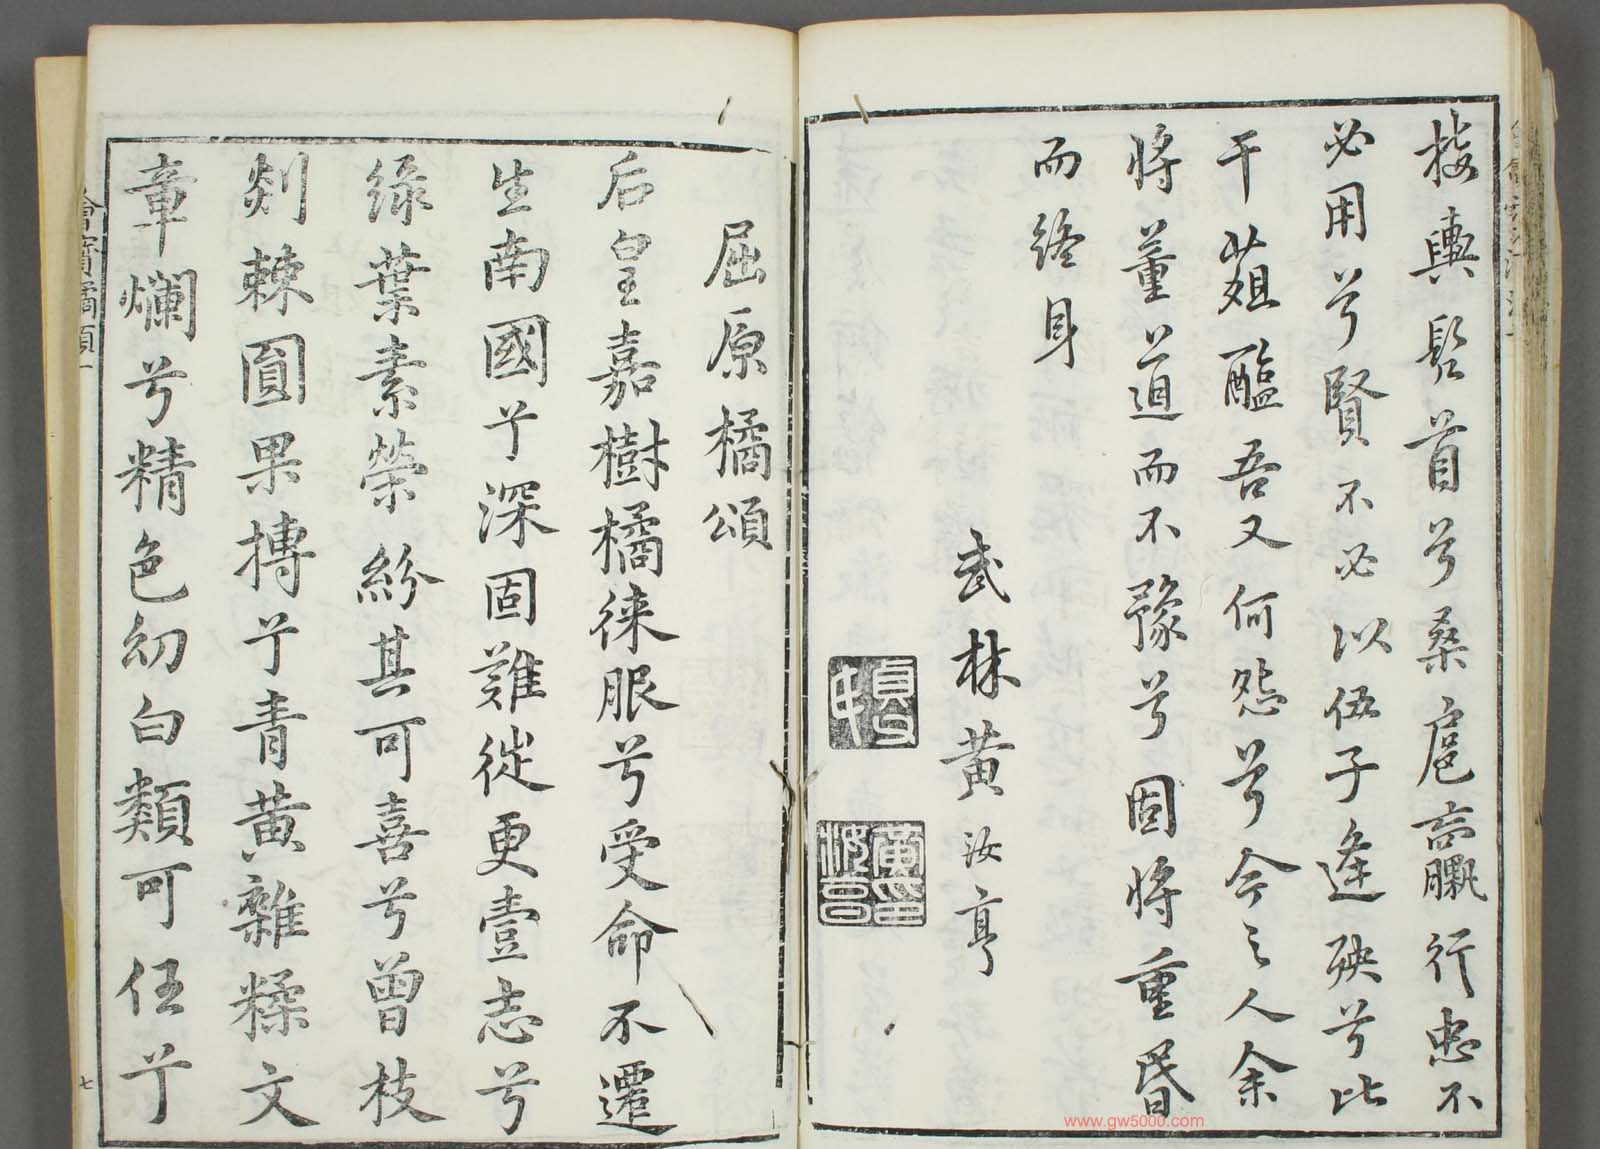 接輿髡首兮桑扈臝行忠不
必用兮賢不必以伍子逢殃兮比
干葅醢吾又何怨兮今之人余
將董道而不豫兮固將重昏
而終身
武林黃汝亨
貞父
黃汝亨印
屈原橘頌
后皇嘉樹橘徠服兮受命不遷
生南國兮深固難徙更壹志兮
綠葉素榮紛其可喜兮曾枝
剡棘圓果摶兮青黃雜糅文
章爛兮精色幼白類可任兮
橘頌一
七
www.gw5000.com